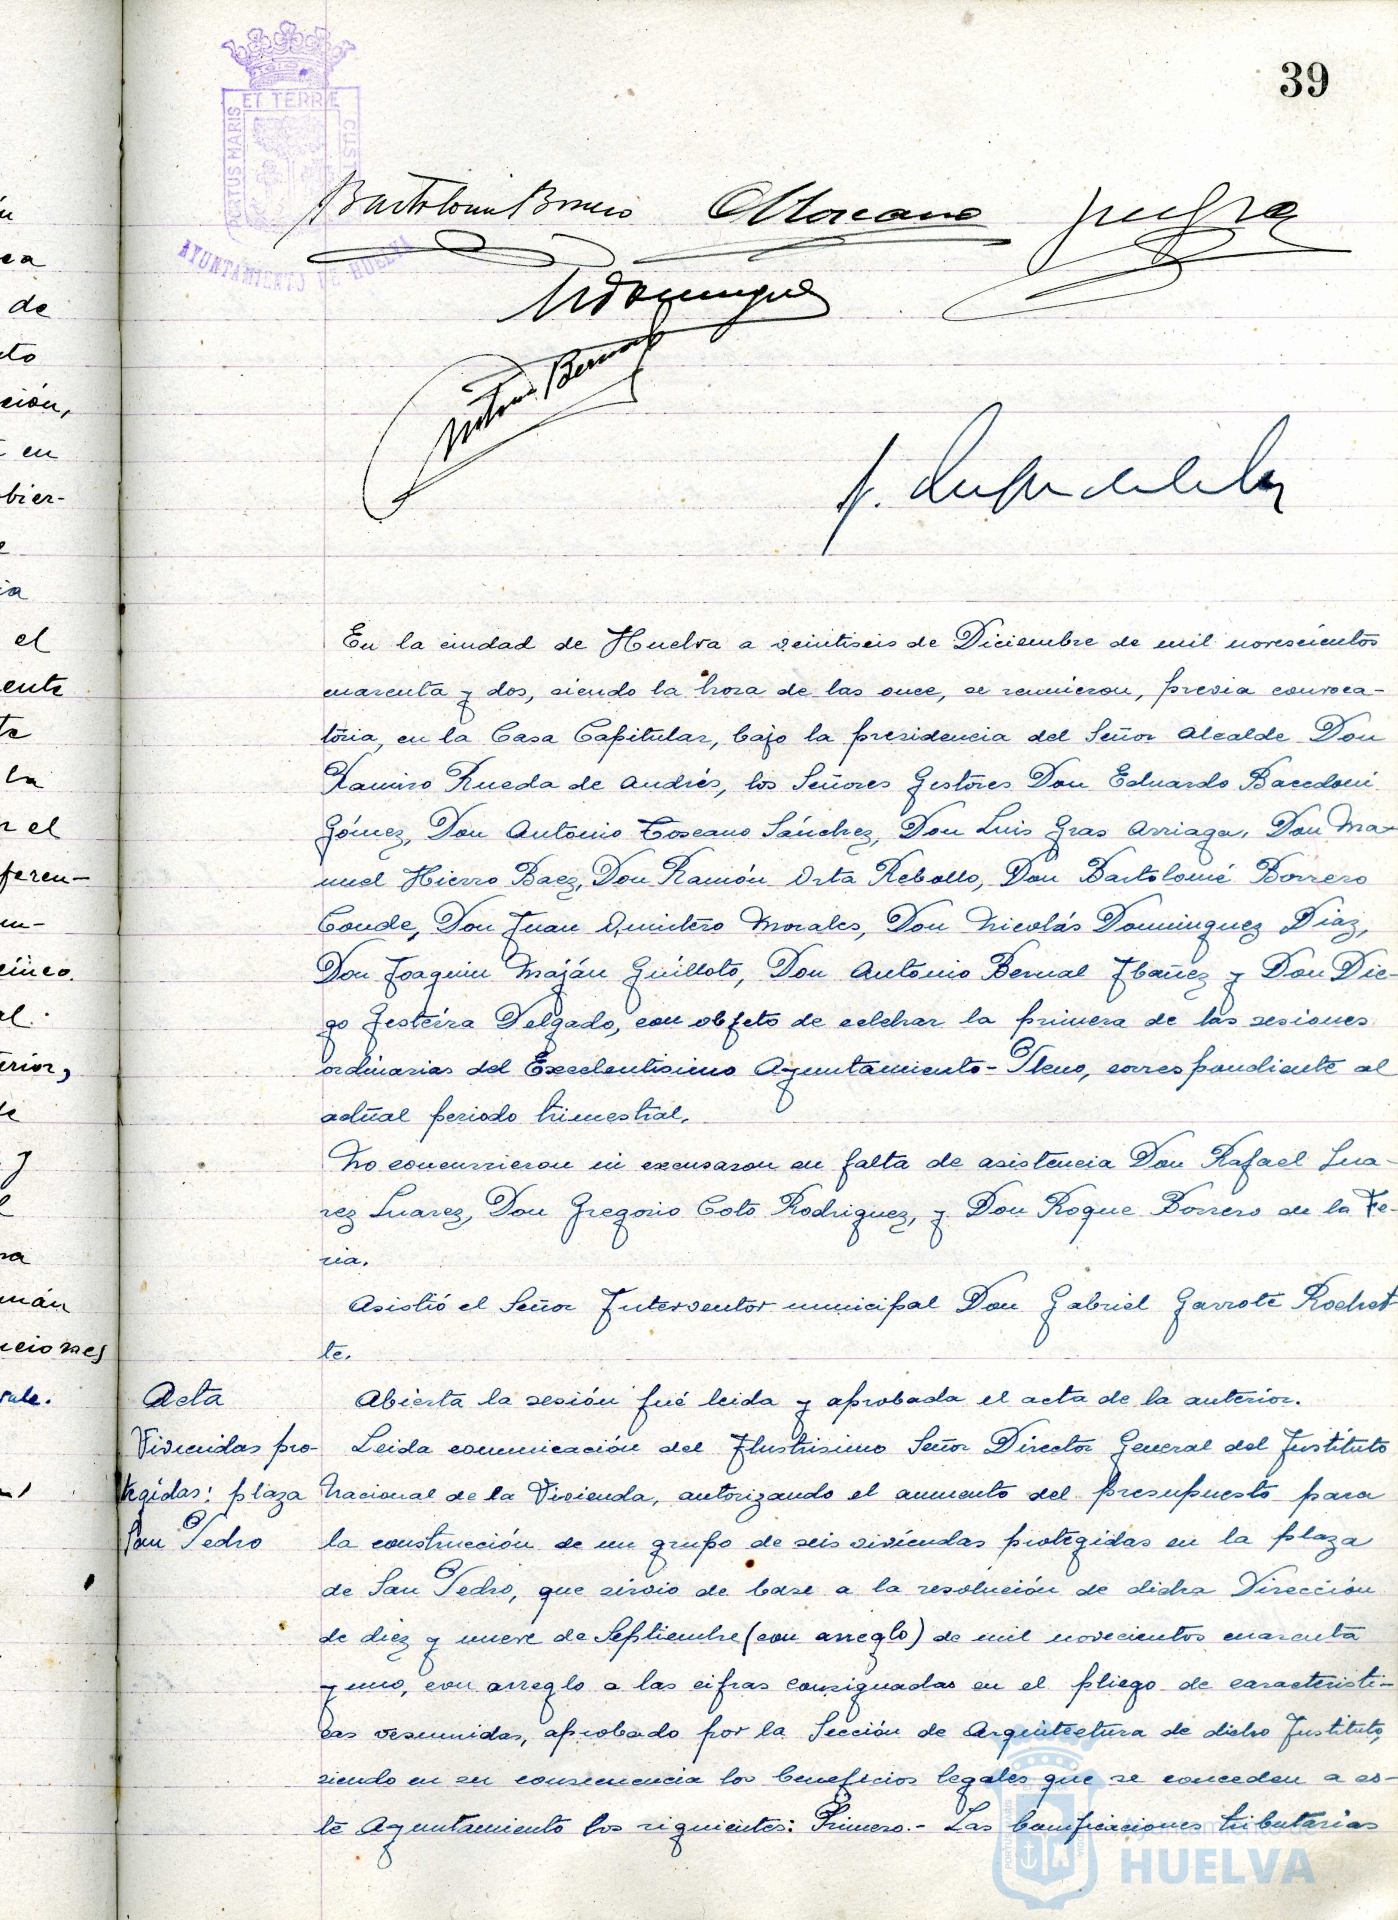 39
PORTUS MARIS ET TERRÆ CUST
AYUNTAMIENTO DE HUELVA
Bartolomé Borrero
Antonio Bernal
En la ciudad de Huelva a veintiseis de Diciembre de mil novescientos
cuarenta y dos, siendo la hora de las once, se reunieron, previa convoca-
toria, en la Casa Capitular, bajo la presidencia del Señor Alcalde Don
Ramiro Rueda de Andrés, los Señores Gestores Don Eduardo Bacedoni
Gómez, Don Antonio Toscano Sánchez, Don Luis Gras Arriaga, Don Ma-
nuel Hierro Baez, Don Ramón Orta Rebollo, Don Bartolomé Borrero
Conde, Don Juan Quintero Morales, Don Nicolás Dominguez Diaz,
Don Joaquin Maján Guilloto, Don Antonio Bernal Ibañez y Don Die-
go Gesteira Delgado, con objeto de celebrar la primera de las sesiones
ordinarias del Excelentisimo Ayuntamiento-Pleno, correspondiente al
actual periodo trimestral.
No concurrieron ni excusaron su falta de asistencia Don Rafael Sua-
rez Suarez, Don Gregorio Coto Rodriguez, y Don Roque Borrero de la Fe-
ria.
Asistió el Señor Interventor municipal Don Gabriel Garrote Rochet-
te.
Acta
Abierta la sesión fué leida y aprobada el acta de la anterior.
Viviendas pro-
tegidas: plaza
San Pedro
Leida comunicación del Ilustrisimo Señor Director General del Instituto
Nacional de la Vivienda, autorizando el aumento del presupuesto para
la construcción de un grupo de seis viviendas protegidas en la plaza
de San Pedro, que sirvio de base a la resolución de dicha Dirección
de diez y nueve de Septiembre (con arreglo) de mil novecientos cuarenta
y uno, con arreglo a las cifras consignadas en el pliego de caracteristi-
cas resumidas, aprobado por la Sección de Arquitectura de dicho Instituto,
siendo en su consecuencia los beneficios legales que se conceden a es-
te Ayuntamiento los siguientes: Primero.- Las bonificaciones tributarias
Ayuntamiento de
HUELVA